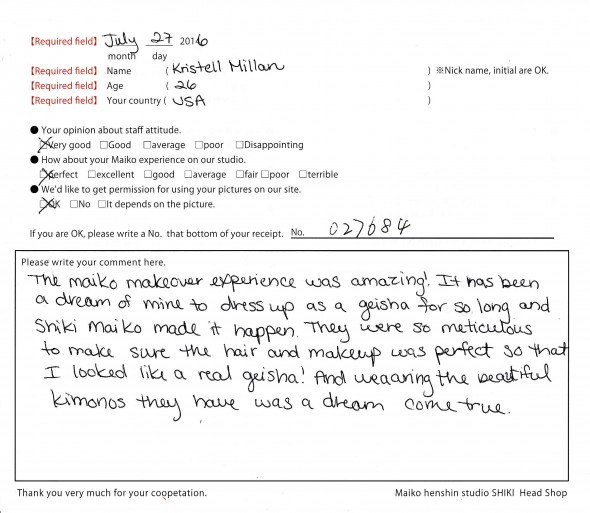 【Required field】 July 27 2016
month day
【Required field】 Name ( Kristell Millan ) ※Nick name, initial are OK.
【Required field】 Age ( 26 )
【Required field】 Your country ( USA )
● Your opinion about staff attitude.
☒Very good □Good □average □poor □Disappointing
● How about your Maiko experience on our studio.
☒Perfect □excellent □good □average □fair □poor □terrible
● We'd like to get permission for using your pictures on our site.
☒OK □No □It depends on the picture.
If you are OK, please write a No. that bottom of your receipt. No. 027684
Please write your comment here.
The maiko makeover experience was amazing! It has been
a dream of mine to dress up as a geisha for so long and
Shiki Maiko made it happen. They were so meticulous
to make sure the hair and makeup was perfect so that
I looked like a real geisha! And weaaring the beautiful
kimonos they have was a dream come true.
Thank you very much for your coopetation. Maiko henshin studio SHIKI Head Shop